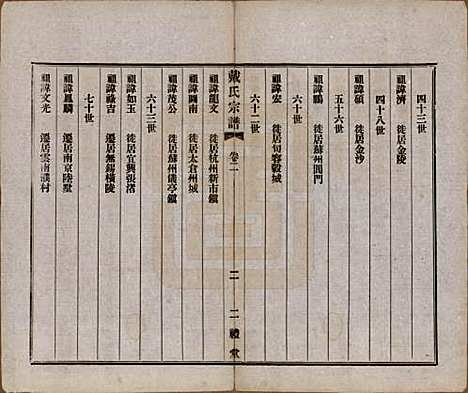 四十三世
祖諱濟　徙居金陵
四十八世
祖諱碩　徙居金沙
五十六世
祖諱鵬　徙居蘇州閶門
六十世
祖諱宏　徙居句容毅城
六十二世
戴氏宗譜　卷二　二　二禮堂
祖諱龍文　徙居杭州新市鎮
祖諱圖南　徙居太倉州城
祖諱茂公　徙居蘇州儀亭鎮
六十三世
祖諱如玉　徙居宜興張渚
祖諱祿吉　遷居無錫橫陵
七十世
祖諱鳳麟　遷居南京陸墅
祖諱文光　遷居雲南濮村